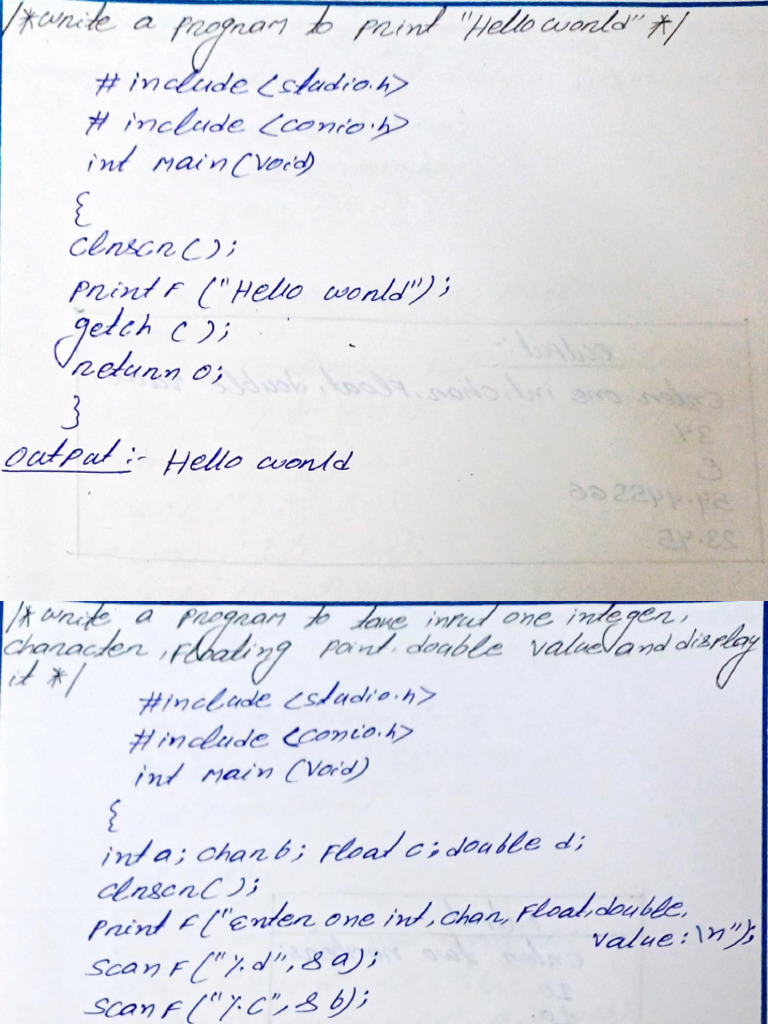 /*write a program to print "Hello world" */
# include <studio.h>
# include <conio.h>
int main (void)
{
clrscr ();
printf ("Hello world");
getch ();
return 0;
}
output :- Hello world
/* write a program to take input one integer,
character, floating point, double value and display
it */
#include <studio.h>
#include <conio.h>
int main (void)
{
int a; char b; float c; double d;
clrscr();
print f ("Enter one int, char, float, double,
value: \n");
scan f ("%d", &a);
scan f ("%c", &b);